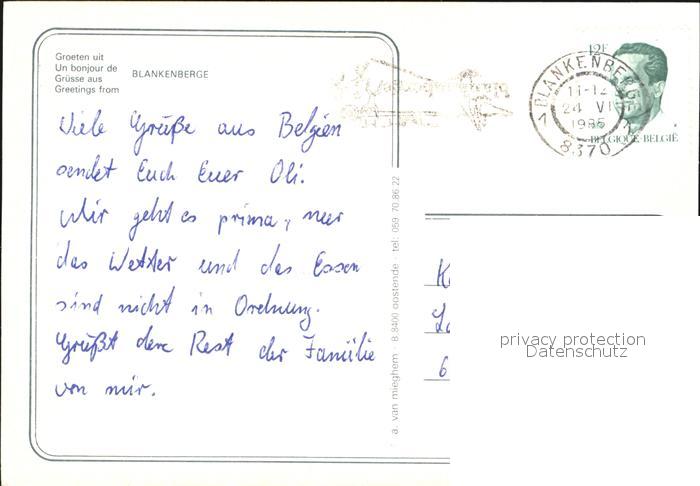 Groeten uit
Un bonjour de
Grüsse aus
Greetings from
BLANKENBERGE
Viele Grüße aus Belgien
sendet Euch Euer Oli.
Mir geht es prima, nur
das Wetter und das Essen
sind nicht in Ordnung.
Grüßt den Rest der Familie
von mir.
a. van mieghem 8.8400 oostende tel: 059 70.86 22
12F
BLANKENBERGE 1
11-12
24 VI
1985
8370
BELGIQUE·BELGIË
K
6
privacy protection
Datenschutz